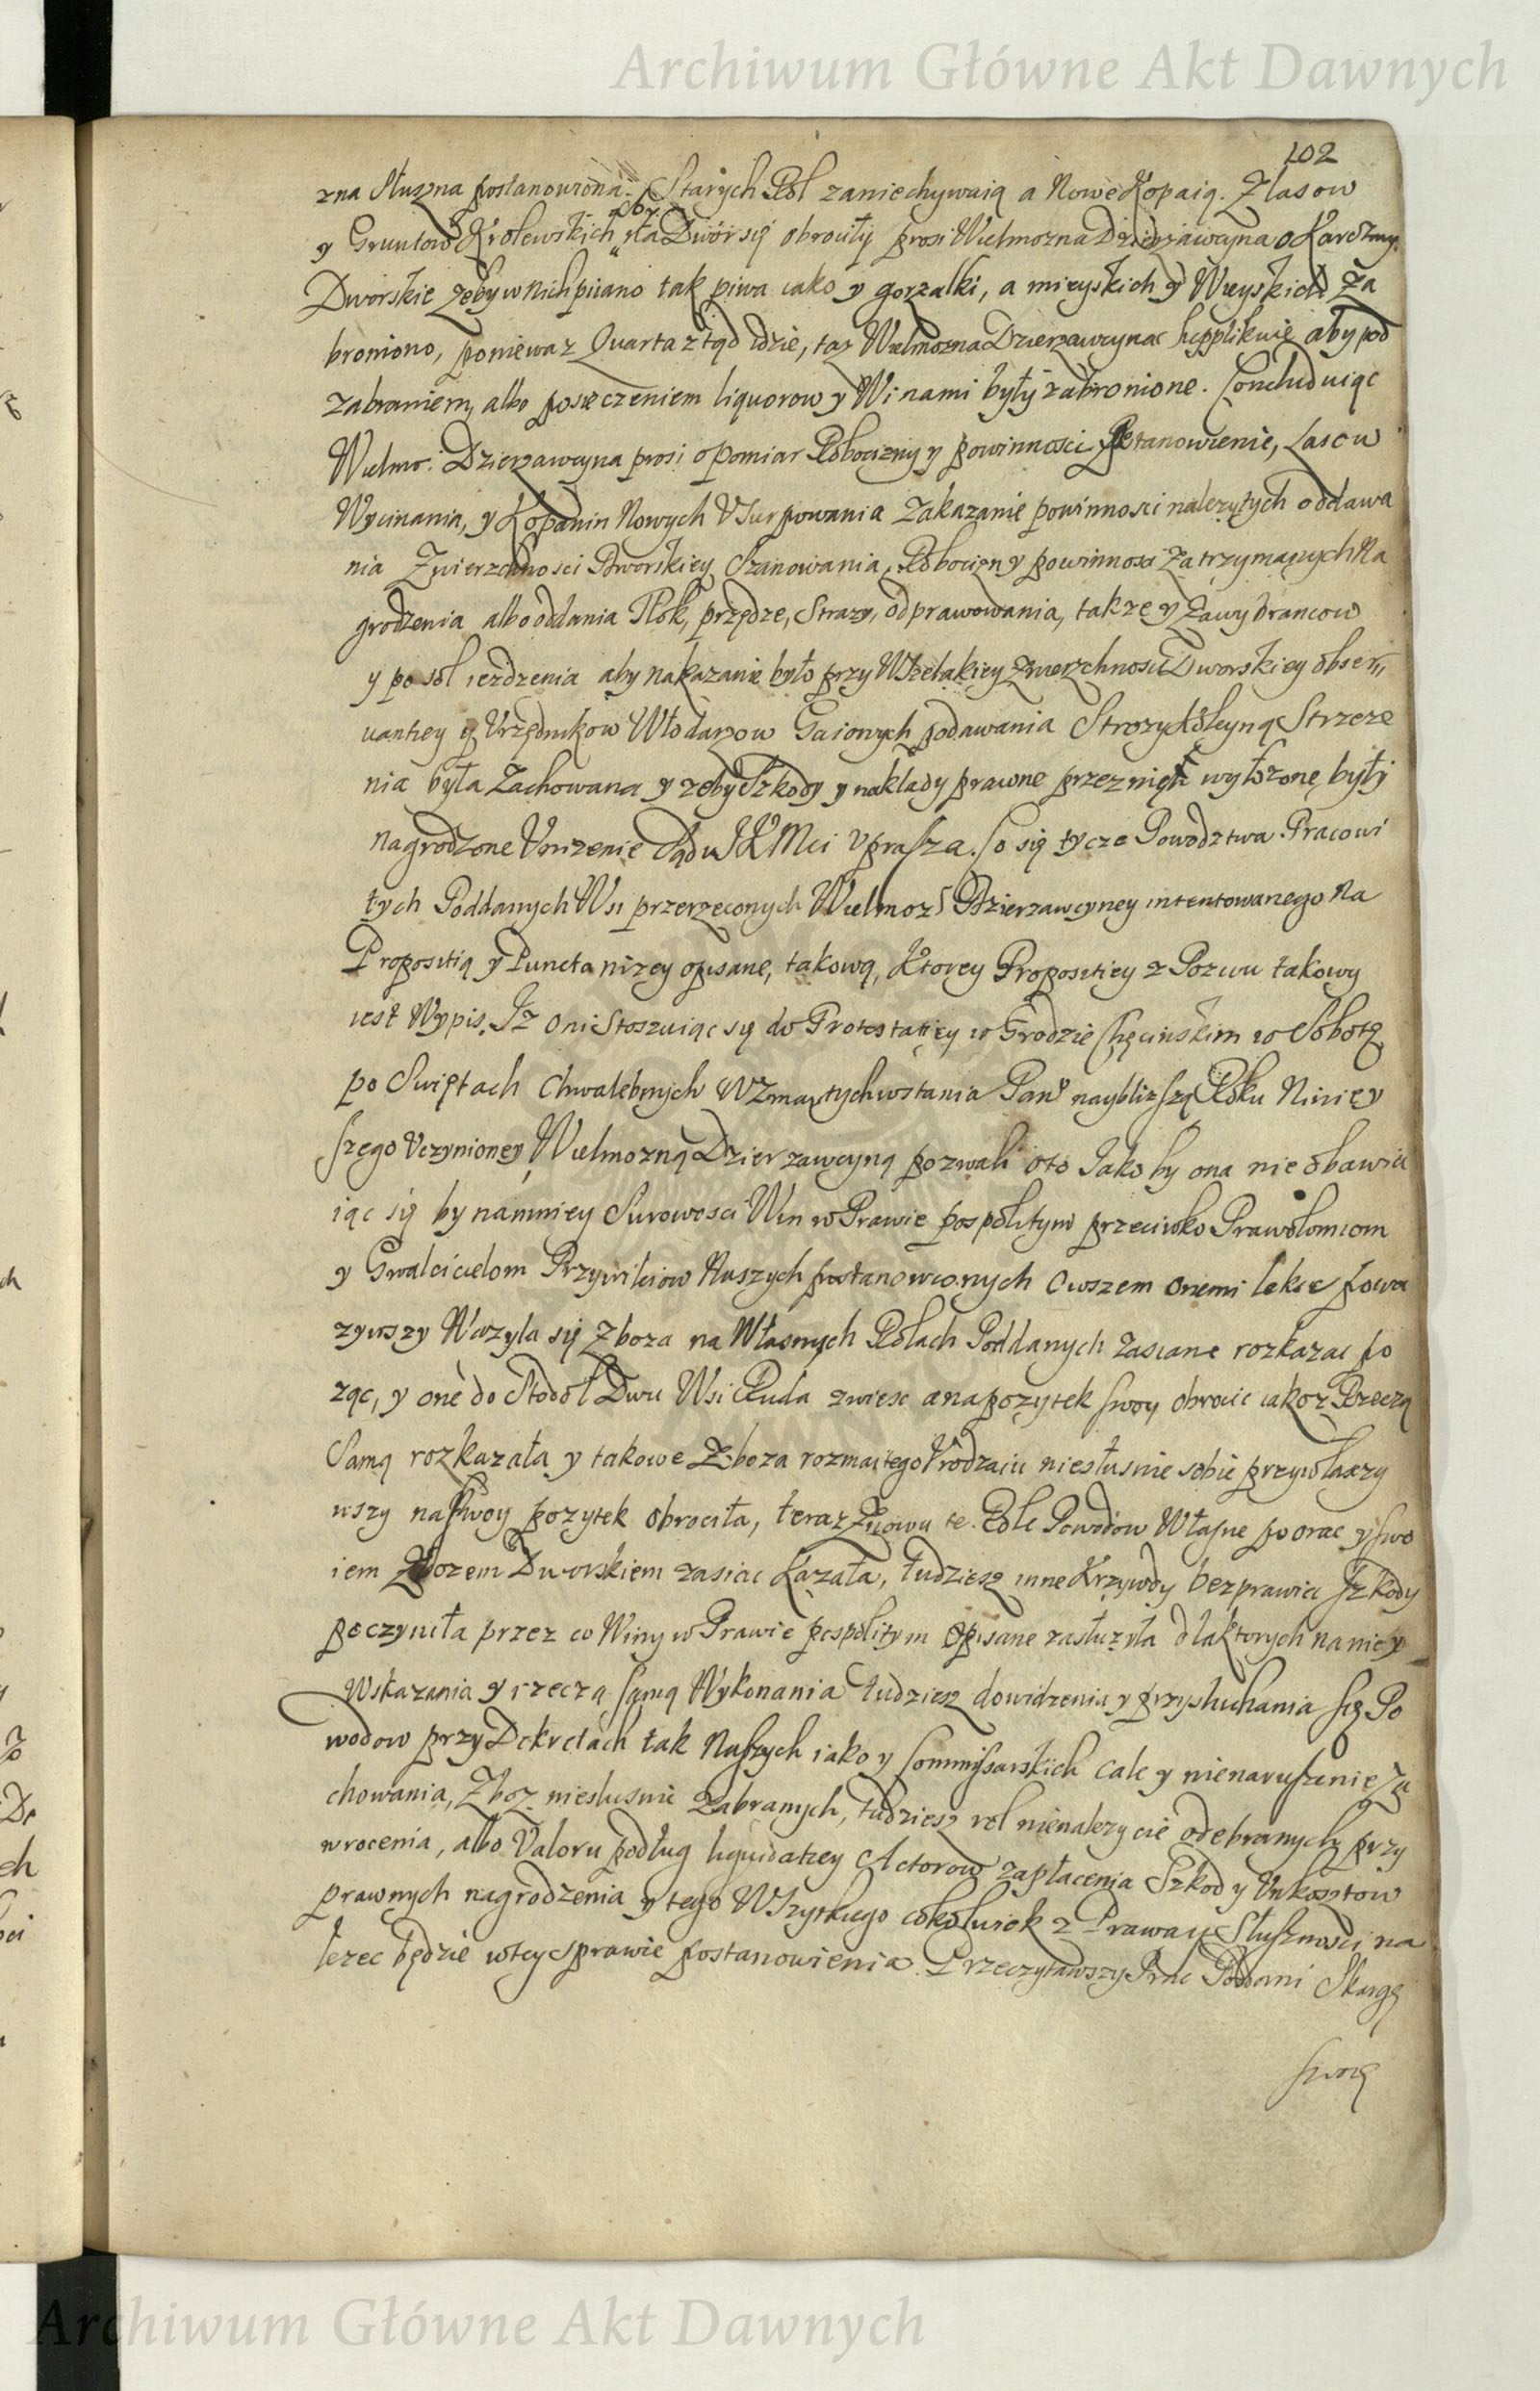 Archiwum Główne Akt Dawnych
102
zna słuszna postanowiona. Starych Pol zaniechywaią a Nowe Kopaią. Z lasow
y Gruntow Krolewskich aby na Dwor się obrociły prosi Wielmozna Dzierzawczyna o Karczmy
Dworskie zeby w nich piiano tak piwa iako y gorzalki, a mieyskich y Wieyskich za
broniono, poniewaz Quarta ztąd idzie, taz Wielmozna Dzierzawczyna supplikuie aby pod
zabraniem albo posieczeniem liquorow y Winami były zabronione. Concluduiąc
Wielmo: Dzierzawczyna prosi o pomiar Robocizny y powinnosci Postanowienie, Lasow
Wycinania, y Kopanin Nowych Usurpowania Zakazanie powinnosci nalezytych oddawa
nia Zwierzchnosci Dworskiey Szanowania, Robocizny powinnosci Zatrzymanych Na
grodzenia albo oddania Tłok, przędze, Strazy, odprawowania, takze y Zawybrancow
y po sol iezdzenia aby nakazanie było przy Wszelakiey Zwierzchnosci Dworskiey obser„
uantiey y Urzędnikow Włodarzow Gaiowych podawania Strozy Kolęyną Strzeze
nia była Zachowana y zeby Szkody y naklady prawne przez nię wyłozone były
nagrodzone Unizenie Sądu JKMci uprasza. Co się tycze Powodztwa Pracowi
tych Poddanych Wsi przerzeconych Wielmoz Dzierzawczyney intentowanego Na
Propositią y Puncta nizey opisane, takową, Ktorey Propositiey z Pozwu takowy
iest Wypis, Iz oni Stosuiąc się do Protestatiey w Grodzie Chęcinskim w Sobotę
po Swiętach Chwalebnych Wzmartychwstania Pans naybliszą Roku Niniey
szego Uczynioney Wielmozną Dzierzawczyną pozwali oto Jakoby ona nie obawia
iąc się by namniey Surowosci Win w Prawie pospolitym przeciwko Prawołomcom
y Gwalcicielom Przywileiow Naszych postanowionych Owszem onemi lekce powa
zywszy Wazyla się Zboza na Własnych Rolach Poddanych zasiane rozkazac po
ząc, y one do Stodoł Dwu Wsi Ruda zwiesc a na pozytek swoy obrocic iakoz Rzeczą
Samą rozkazała y takowe Zboza rozmaitego Urodzaiu niesłusnie sobie przywłaszczy
wszy na swoy pozytek obrociła, teraz Znowu te Role Powodow Własne poorac y swo
iem Zbozem Dworskiem zasiac Kazała, tudziesz inne Krzywdy bezprawia szkody
poczyniła przez co Winy w Prawie pospolitym opisane zasłuzyła dla ktorych na niey
Wskazania y rzeczą samą Wykonania tudziesz do widzenia y przysłuchania się Po
wodow przy Dekretach tak Naszych iako y Commissarskich cale y nienaruszenie Za
chowania, Zboz niesłusnie zabranych, tudziesz rol nienalezycie odebranych przy
wrocenia, albo Valoru podług liquidatiey Actorow zapłacenia Szkod y Unkosztow
prawnych nagrodzenia y tego Wszytkiego cokolwiek z Prawa y Słusznosci na
lezec będzie w tey sprawie postanowienia. Przeczytawszy Prac Poddani Skargę
swoię
Archiwum Główne Akt Dawnych